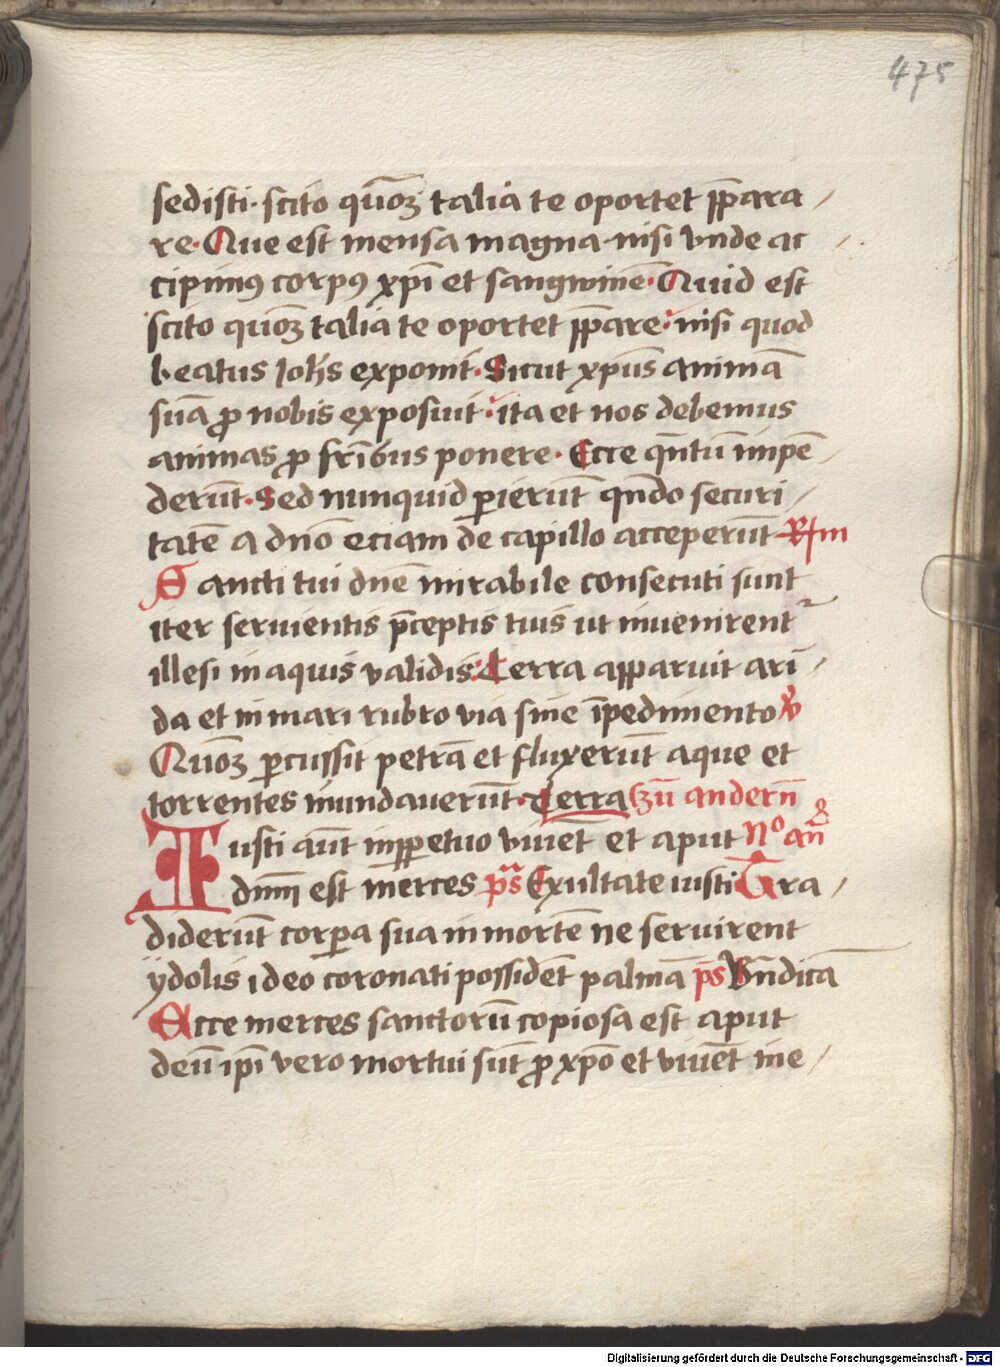 475
sedisti· scito qūoʒ talia te oportet p̄para
re· Que est mensa magna· nisi vnde ac
cipimꝰ corpꝰ xp̄i et sangwinē· Quid est
scito qūoʒ talia te oportet p̄pare· nisi quod
beatus Joh̄s expōnit· Sicut xp̄us animā
suā ꝓ nobis exposuit· ita et nos debemus
animas ꝓ fr̄ibus ponere· Ecce qn̄tū impē
derūt· Sed nunquid ꝑierūt qn̄do securi
tatē a dn̄o eciam de capillo acceperūt Rm̄
Sancti tui dn̄e mirabile consecuti sunt
iter seruientis p̄ceptis tuis ut inuenirent᷑
illesi in aquis validis· Terra apparuit ari
da et in mari rubro via sine īpedimento v̊
Quōʒ ꝑcussit petrā et fluxerūt aque et
torrentes inundauerūt· Terra Zū andern̄
Justi aūt inꝑpetuo viuēt et aput No an̄
dn̄m est merces p̄s Exultate iusti Tra
diderūt corꝑa sua in mortē ne seruirent
ydolis ideo coronati possidēt palmā p̄s Bn̄dicā
Ecce merces sanctorū copiosa est aput
deū ip̄i vero mortui sūt ꝓ xp̄o et viuēt ine
Digitalisierung gefördert durch die Deutsche Forschungsgemeinschaft - DFG